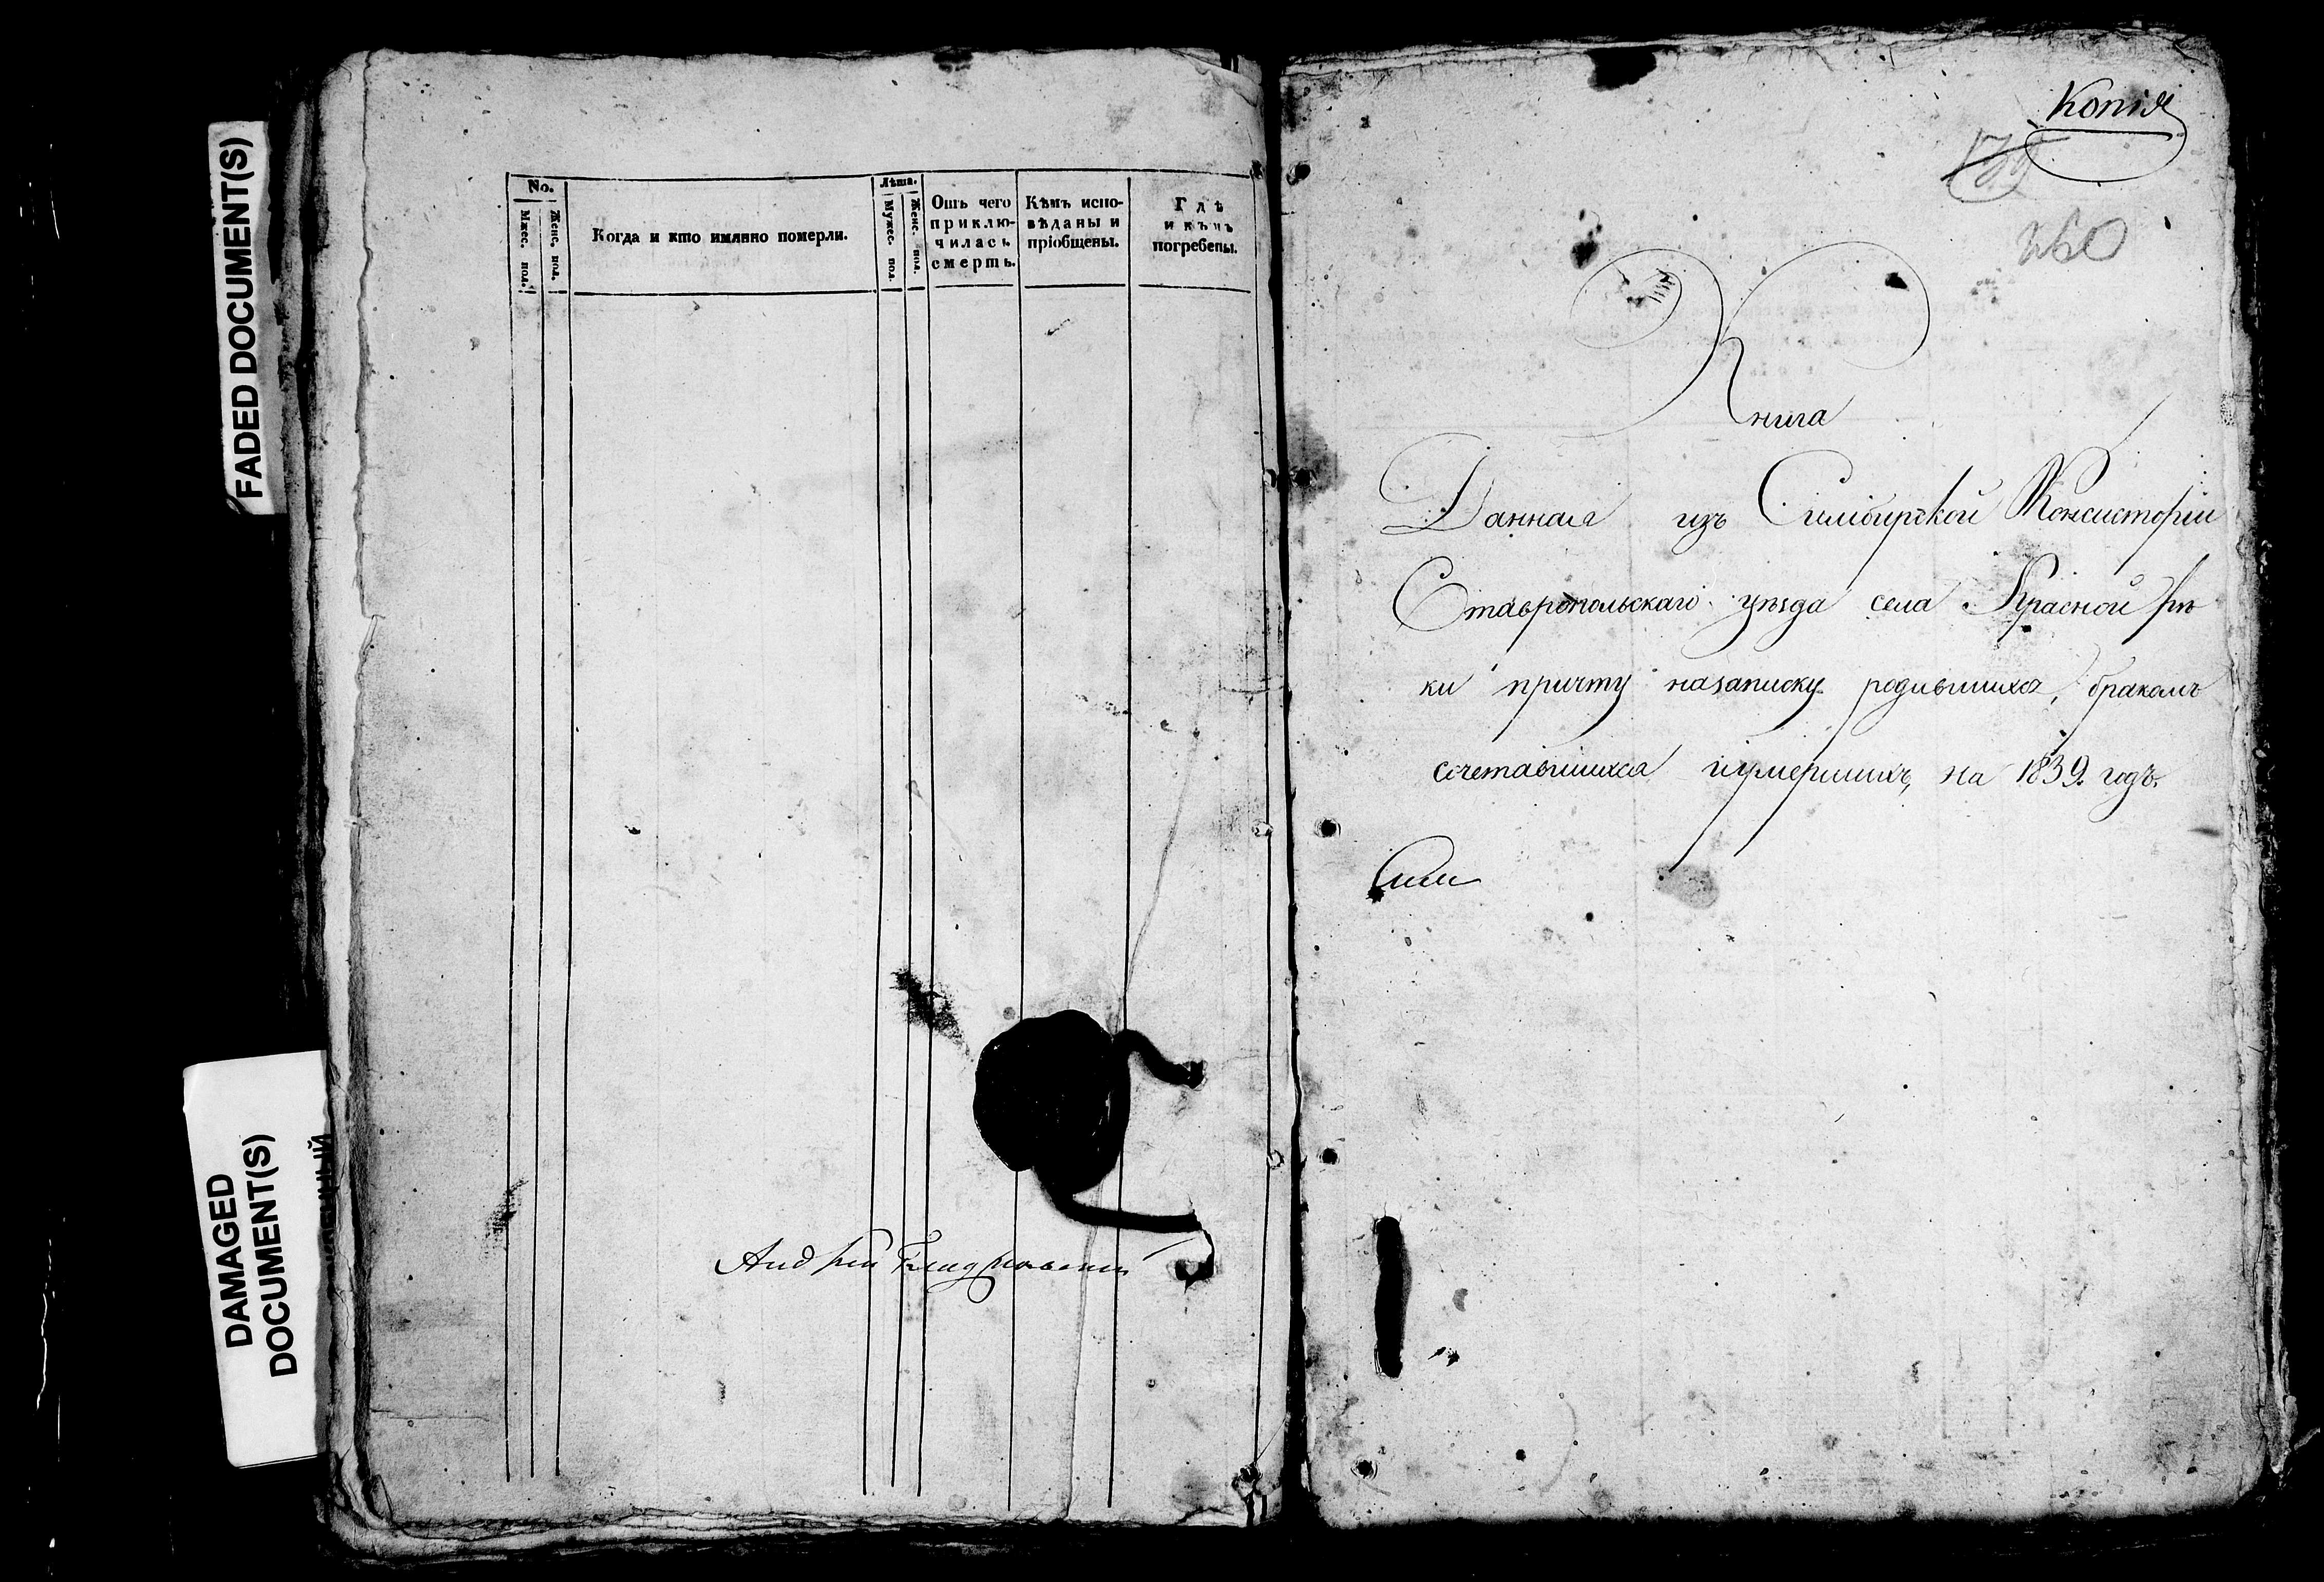 FADED DOCUMENT(S)
DAMAGED
DOCUMENT(S)
No.
Мжес. пол.
Женс. пол.
Когда и кто имянно померли.
Лѣта.
Мужес. пол.
Женс. пол.
Отъ чего
приклю-
чилась
смерть.
Кѣмъ испо-
вѣданы и
пріобщены.
Гдѣ
и кѣмъ
погребены.
Андрей
Копія
139
260
Книга
Данная изъ Симбирской Консисторіи
Ставропольскаго уѣзда села Красной рѣ
ки причту назаписку родившихся, бракомъ
сочетавшихся иумершихъ, на 1839. годъ.
Сим